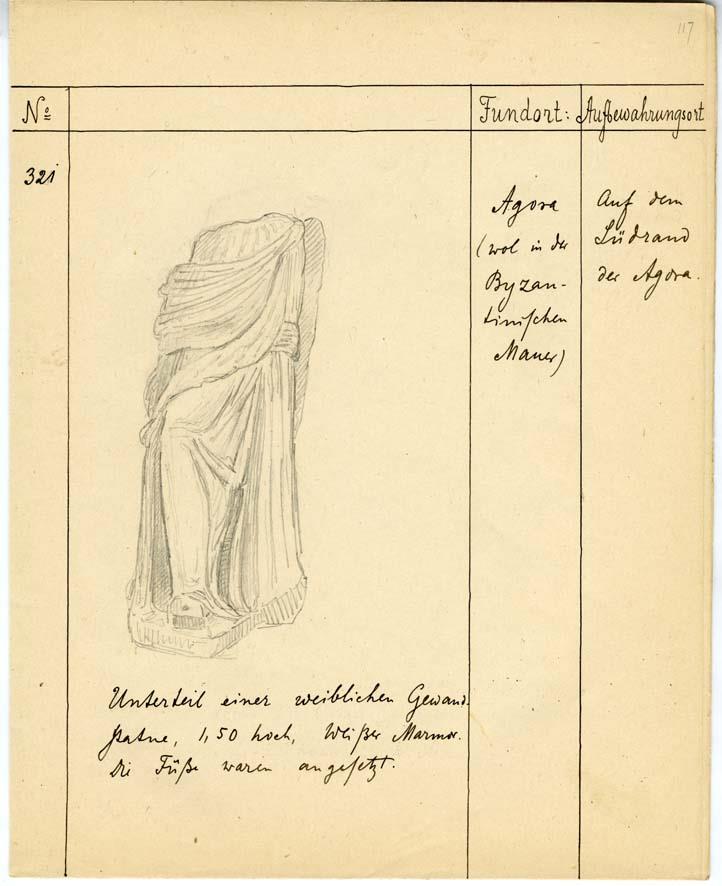 117
No Fundort: Aufbewahrungsort
321
Agora
(wol in der
Byzan-
tinischen
Mauer)
Auf dem
Südrand
der Agora.
Unterteil einer weiblichen Gewand-
statue, 1,50 hoch, Weißer Marmor.
Die Füße waren angesetzt.